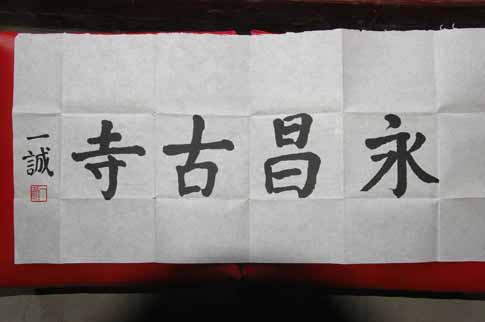 永昌古寺
一誠